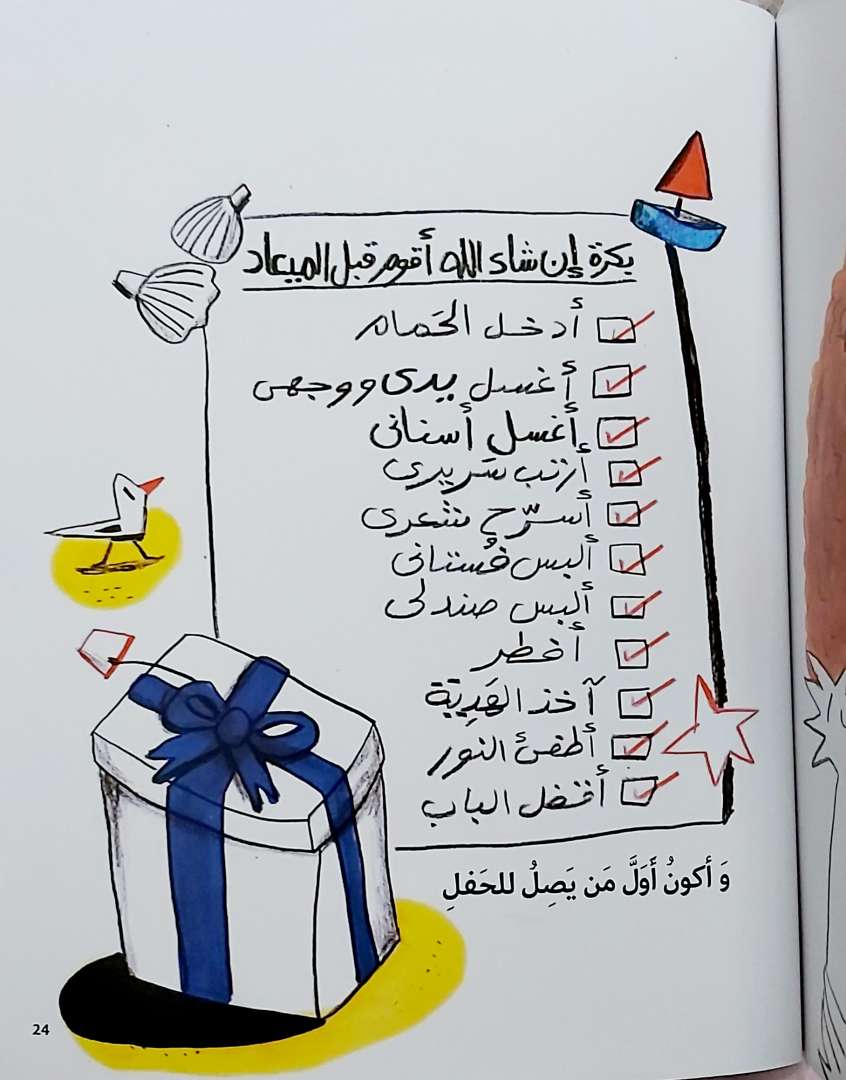 بكرة إن شاء الله أقوم قبل الميعاد
أدخل الحَمام
أغسل يدى ووجهى
أغسل أسنانى
أرتب سَريرى
أسرّح شعرى
ألبس فُستانى
ألبس صندلى
أفطر
آخذ الهَدِيّة
أطفئ النور
أقفل الباب
وَ أكونُ أَوَلَّ مَن يَصِلُ للحَفلِ
24